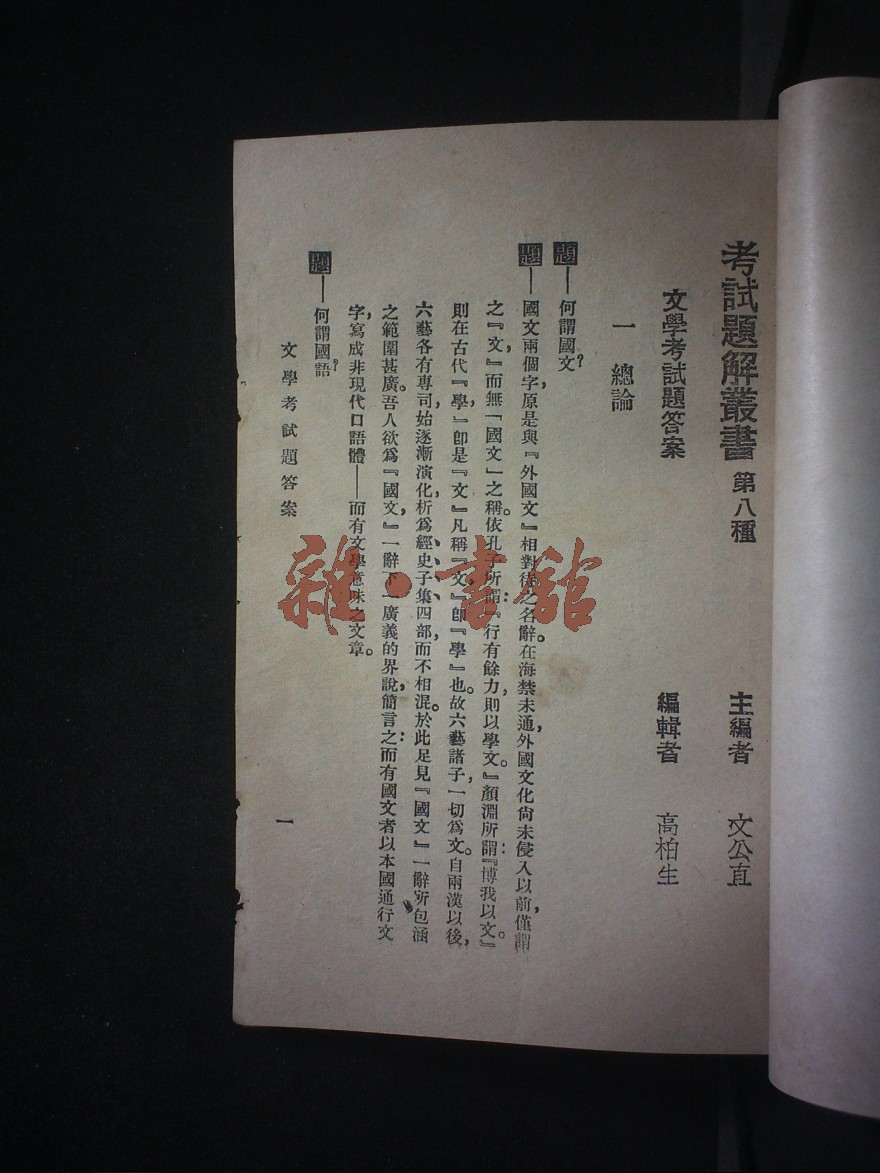 考試題解叢書 第八種 主編者 文公直
文學考試題答案 編輯者 高柏生
一 總論
題——何謂國文？
題——國文兩個字，原是與『外國文』相對待之名辭。在海禁未通，外國文化尙未侵入以前，僅謂
之『文』，而無「國文」之稱。依孔子所謂：『行有餘力，則以學文。』顏淵所謂：『博我以文。』
則在古代『學』，卽是『文』，凡稱『文』，卽『學』也。故六藝諸子，一切爲文。自兩漢以後，
六藝各有專司，始逐漸演化，析爲經、史、子、集四部，而不相混。於此足見『國文』一辭所包涵
之範圍甚廣。吾人欲爲『國文』一辭下一廣義的界說，簡言之：而有國文者以本國通行文
字，寫成非現代口語體——而有文學意味之文章。
題——何謂國語？
文學考試題答案
一
雜·書館